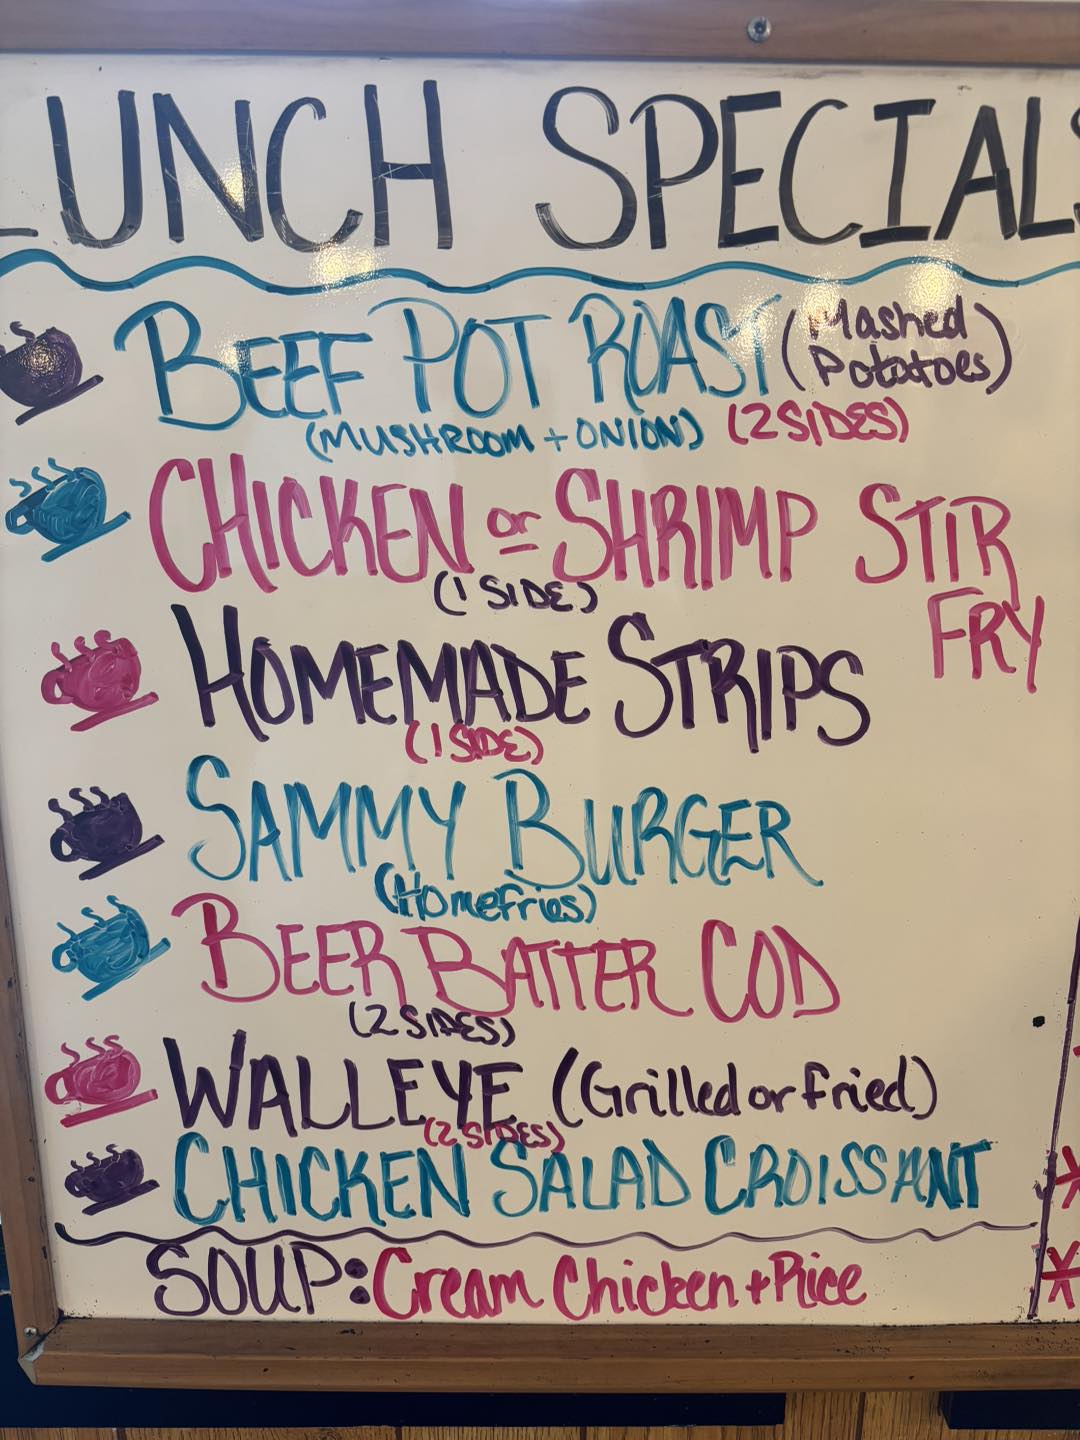 LUNCH SPECIALS
BEEF POT ROAST (Mashed
Potatoes)
(MUSHROOM + ONION) (2 SIDES)
CHICKEN or SHRIMP STIR
FRY
(1 SIDE)
HOMEMADE STRIPS
(1 SIDE)
SAMMY BURGER
(Homefries)
BEER BATTER COD
(2 SIDES)
WALLEYE (Grilled or Fried)
(2 SIDES)
CHICKEN SALAD CROISSANT
SOUP: Cream Chicken + Rice